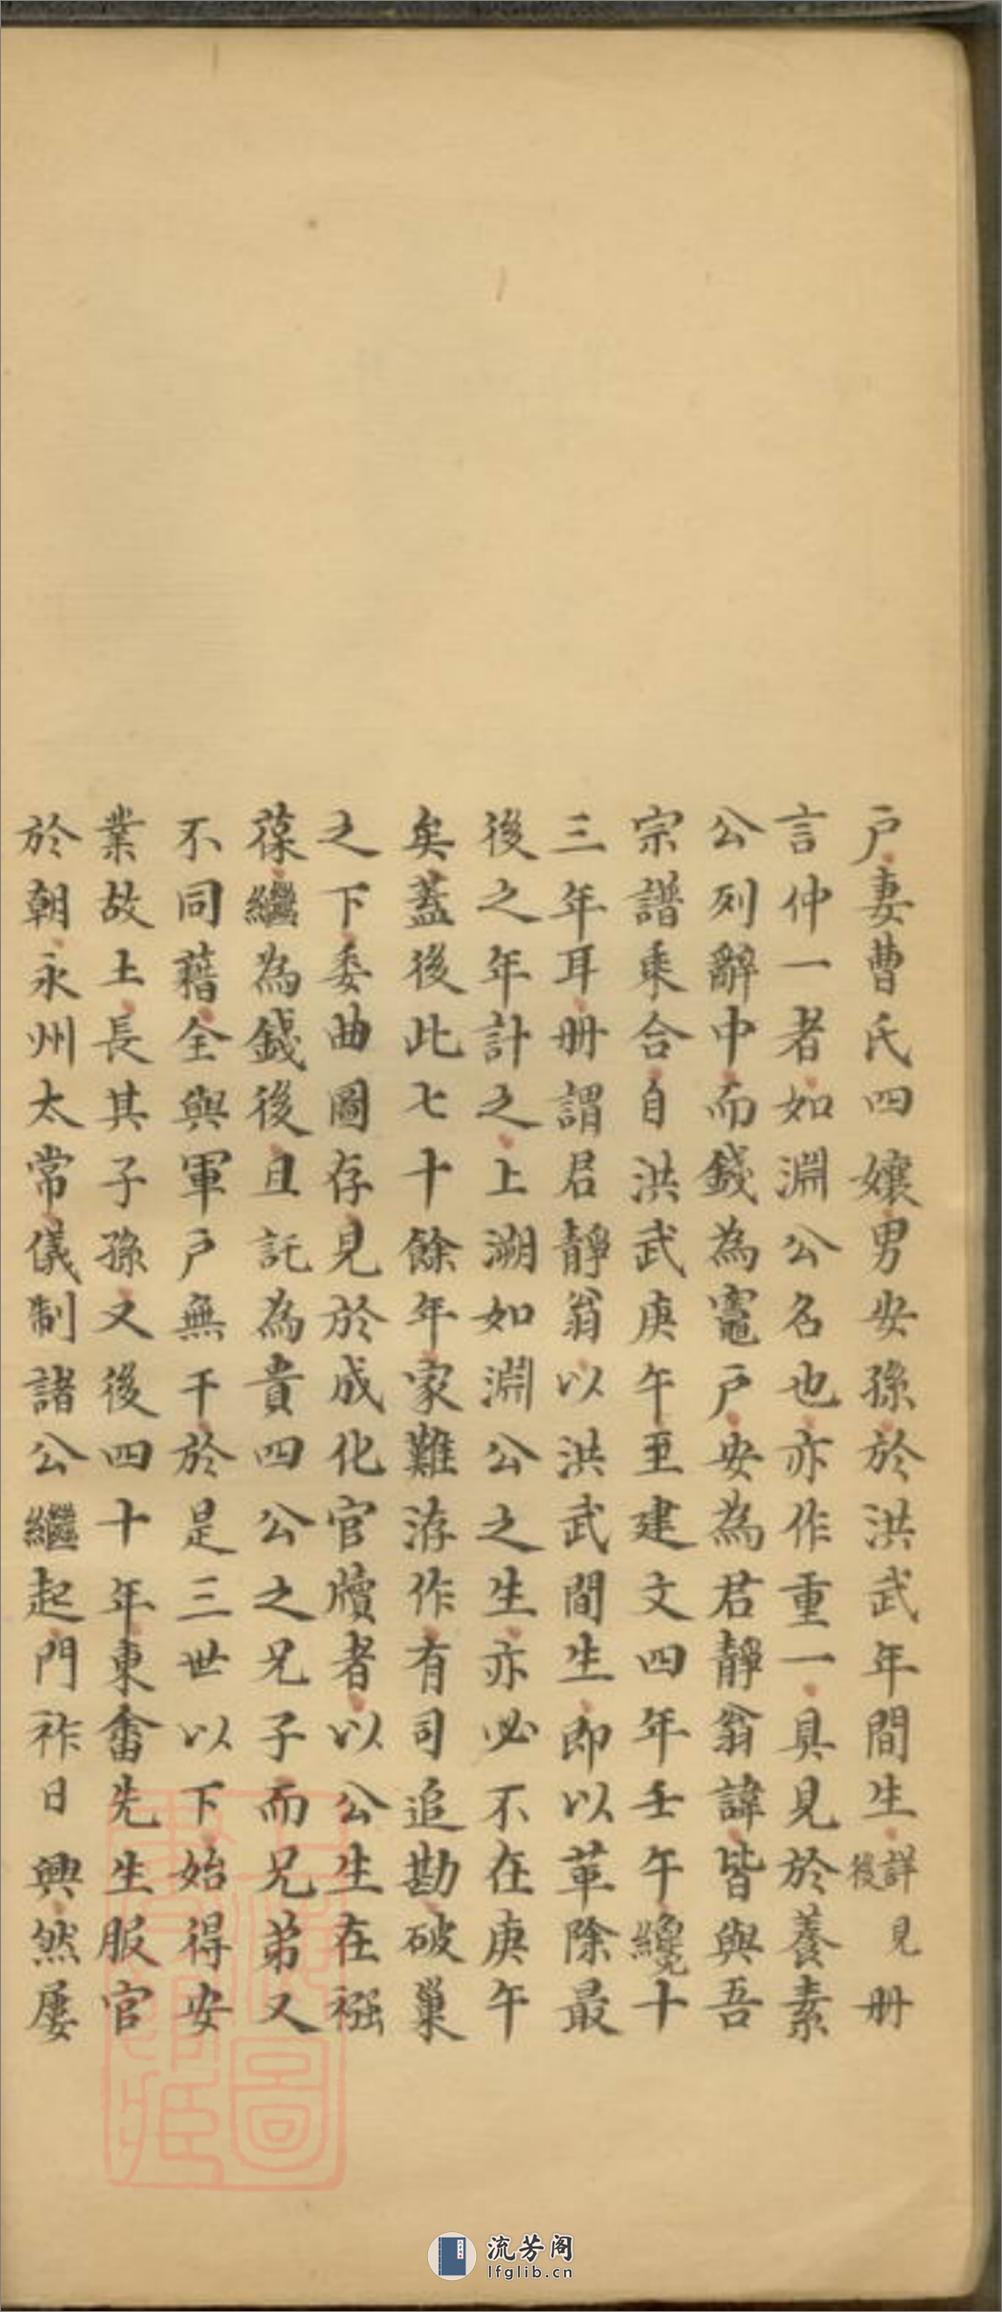 戶妻曹氏四孃男安孫於洪武年間生詳見後冊
言仲一者如淵公名也亦作重一具見於養素
公列辭中而錢為竈戶安為君靜翁諱皆與吾
宗譜乘合自洪武庚午至建文四年壬午纔十
三年耳冊謂君靜翁以洪武間生即以革除最
後之年計之上溯如淵公之生亦必不在庚午
矣蓋後此七十餘年家難洊作有司追勘破巢
之下委曲圖存見於成化官牘者以公生在襁
葆繼為錢後且託為貴四公之兄子而兄弟又
不同藉全與軍戶無干於是三世以下始得安
業故土長其子孫又後四十年東畬先生服官
於朝永州太常儀制諸公繼起門祚日興然屢
流芳阁
lfglib.cn